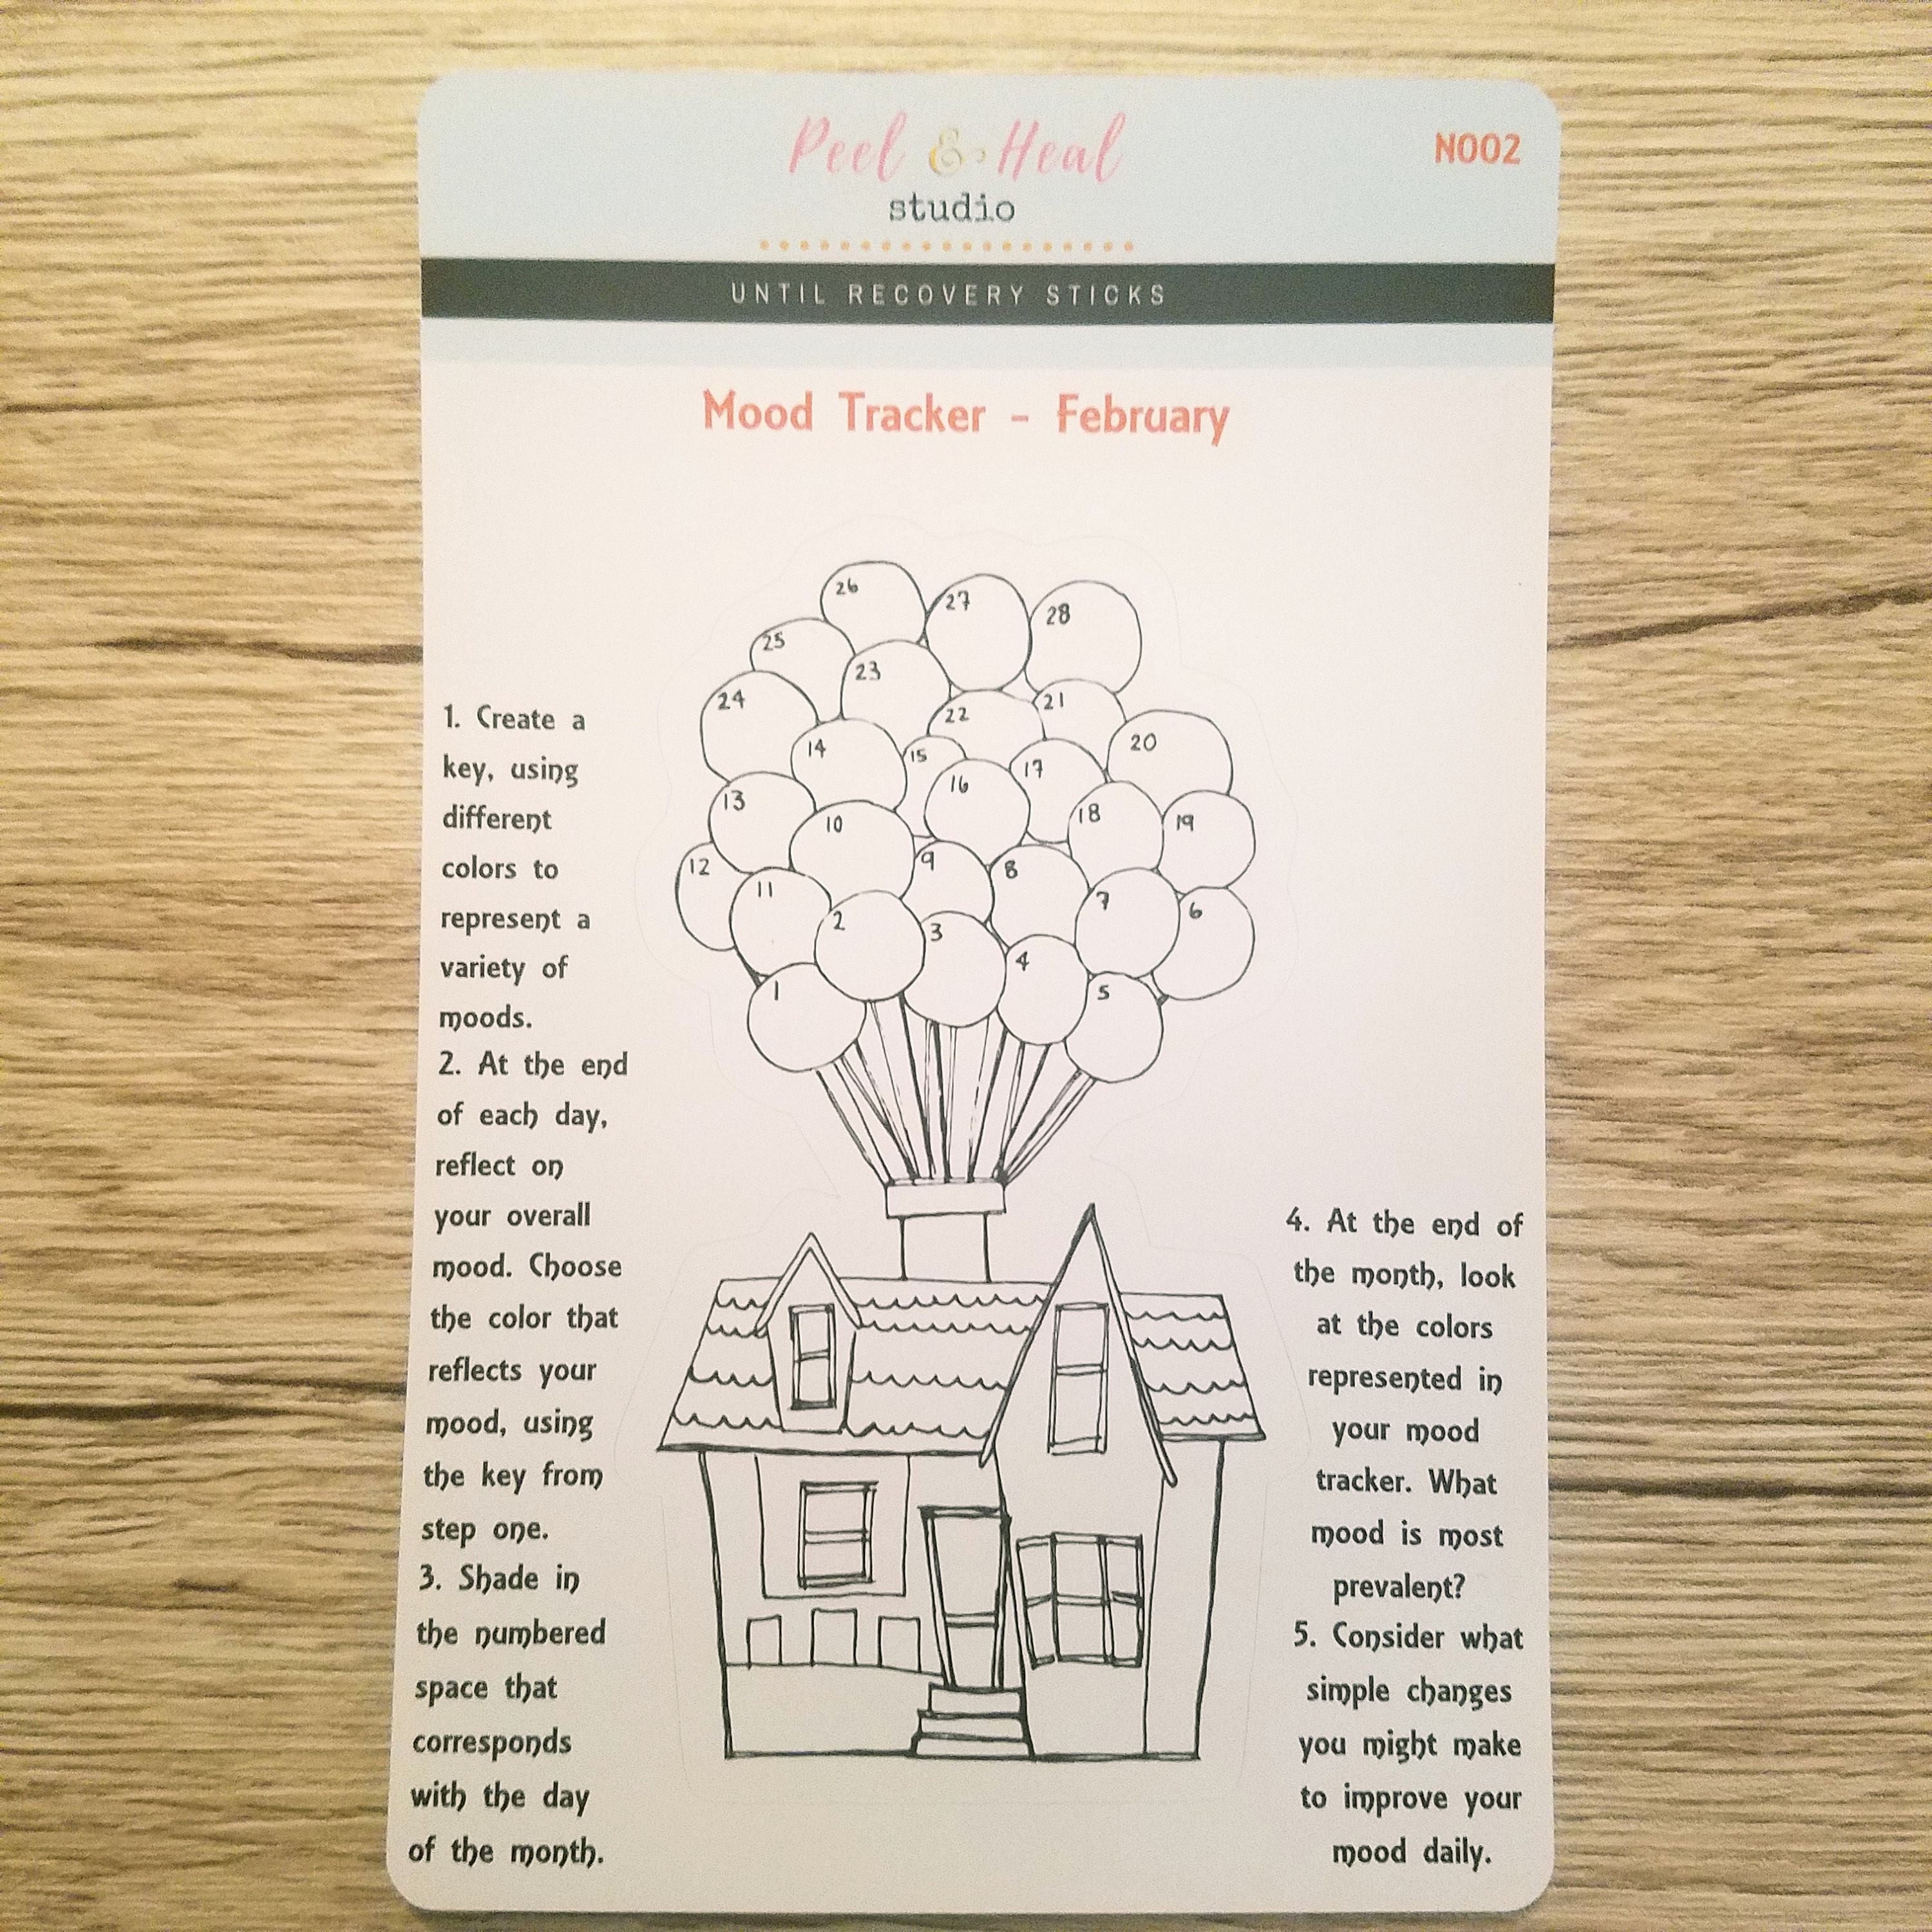 Peel & Heal
studio
N002
UNTIL RECOVERY STICKS
Mood Tracker - February
26
27
28
25
23
24
22
21
14
15
17
20
13
16
10
18
19
12
11
9
8
7
6
2
3
4
1
5
1. Create a
key, using
different
colors to
represent a
variety of
moods.
2. At the end
of each day,
reflect on
your overall
mood. Choose
the color that
reflects your
mood, using
the key from
step one.
3. Shade in
the numbered
space that
corresponds
with the day
of the month.
4. At the end of
the month, look
at the colors
represented in
your mood
tracker. What
mood is most
prevalent?
5. Consider what
simple changes
you might make
to improve your
mood daily.